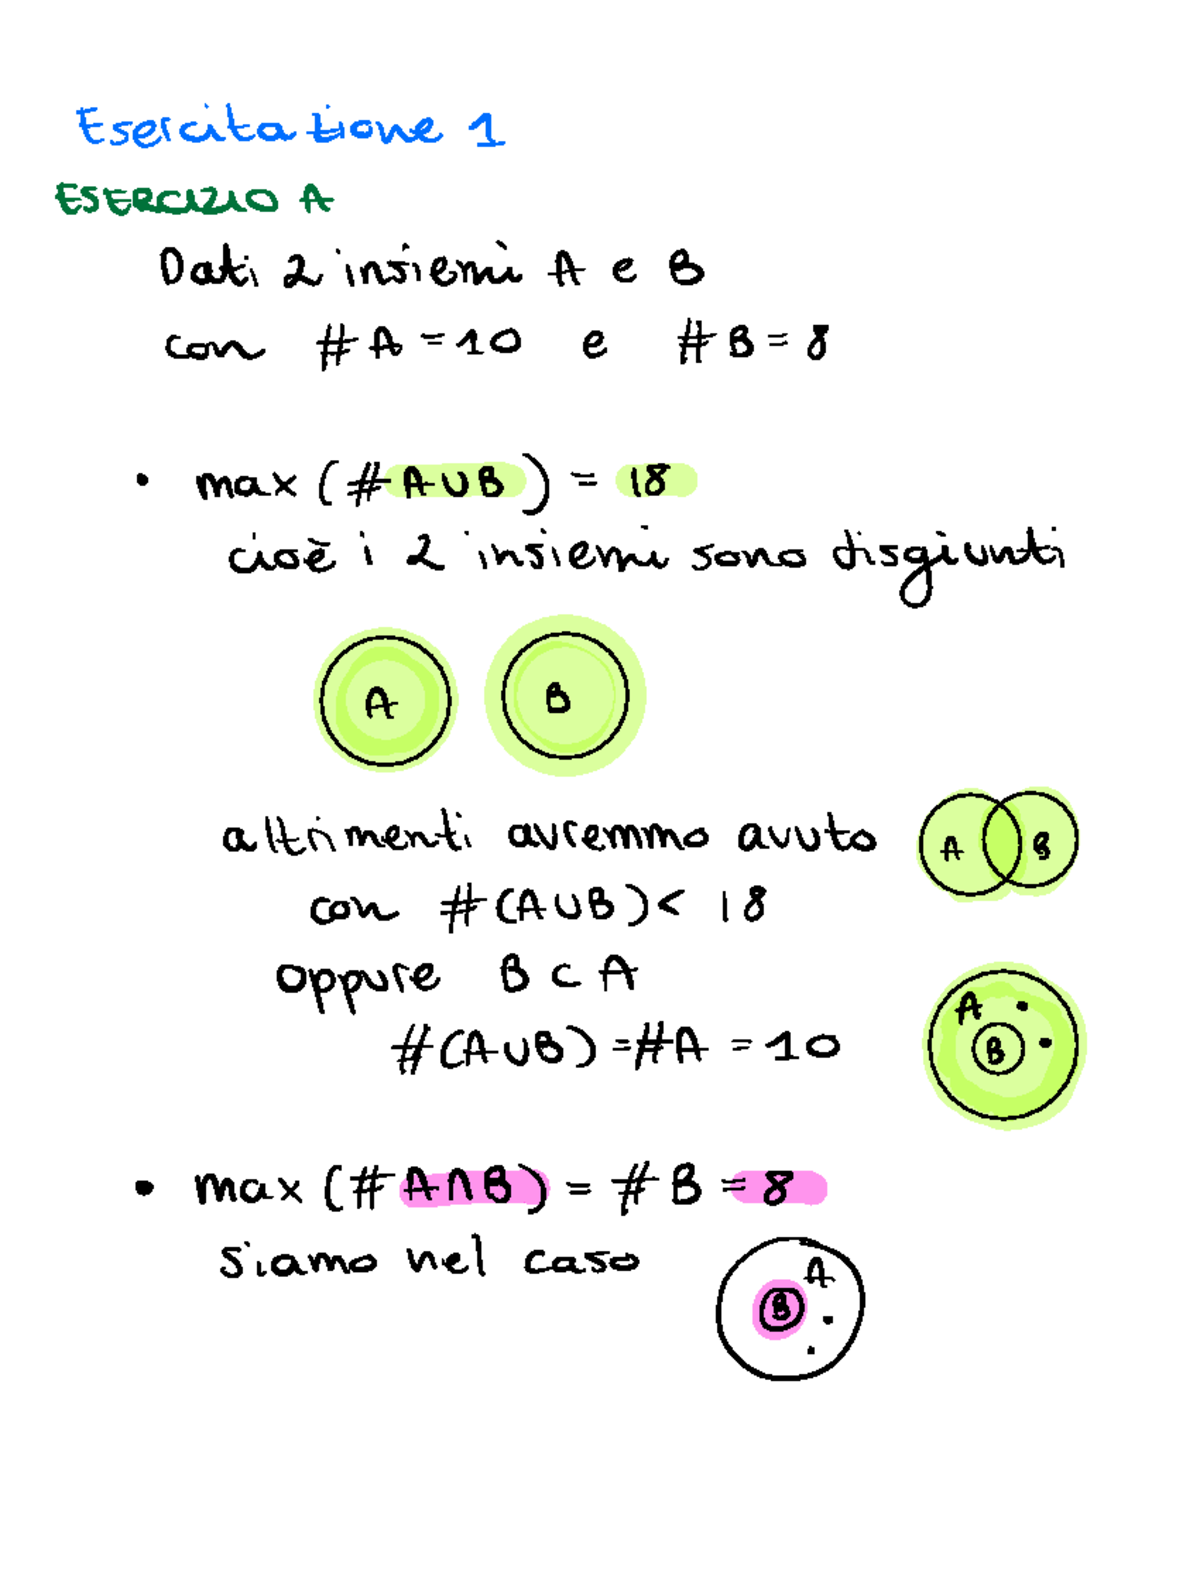 Esercitazione 1
ESERCIZIO A
Dati 2 insiemi A e B
con #A = 10 e #B = 8
• max (#A∪B) = 18
cioè i 2 insiemi sono disgiunti
A B
altrimenti avremmo avuto
A B
con #(A∪B) < 18
oppure B ⊂ A
A
B
#(A∪B) = #A = 10
• max (#A∩B) = #B = 8
siamo nel caso
A
B